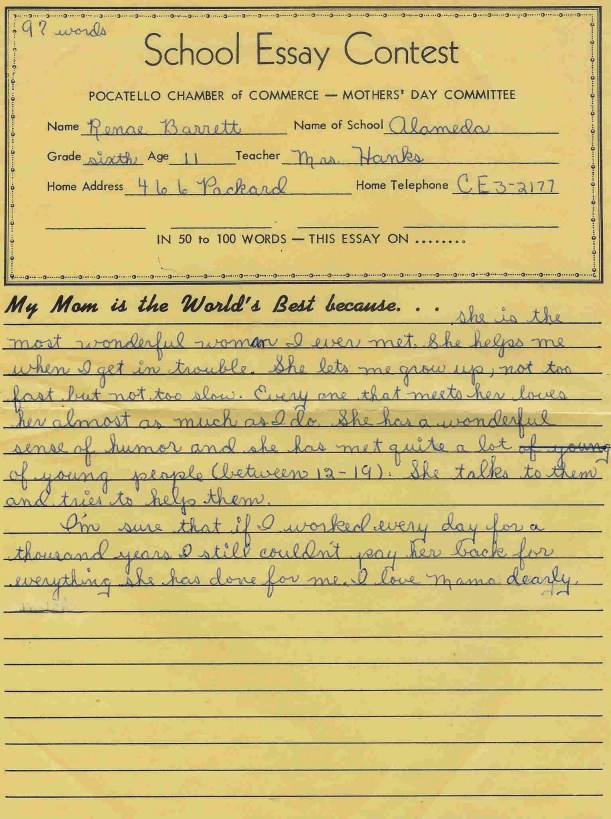 97 words
School Essay Contest
POCATELLO CHAMBER of COMMERCE — MOTHERS' DAY COMMITTEE
Name Renae Barrett Name of School Alameda
Grade sixth Age 11 Teacher Mrs. Hanks
Home Address 466 Packard Home Telephone CE3-2177
IN 50 to 100 WORDS — THIS ESSAY ON ........
My Mom is the World's Best because. . . she is the
most wonderful woman I ever met. She helps me
when I get in trouble. She lets me grow up, not too
fast but not too slow. Every one that meets her loves
her almost as much as I do. She has a wonderful
sense of humor and she has met quite a lot of young
of young people (between 12-19). She talks to them
and tries to help them.
I'm sure that if I worked every day for a
thousand years I still couldn't pay her back for
everything she has done for me. I love Mama dearly.